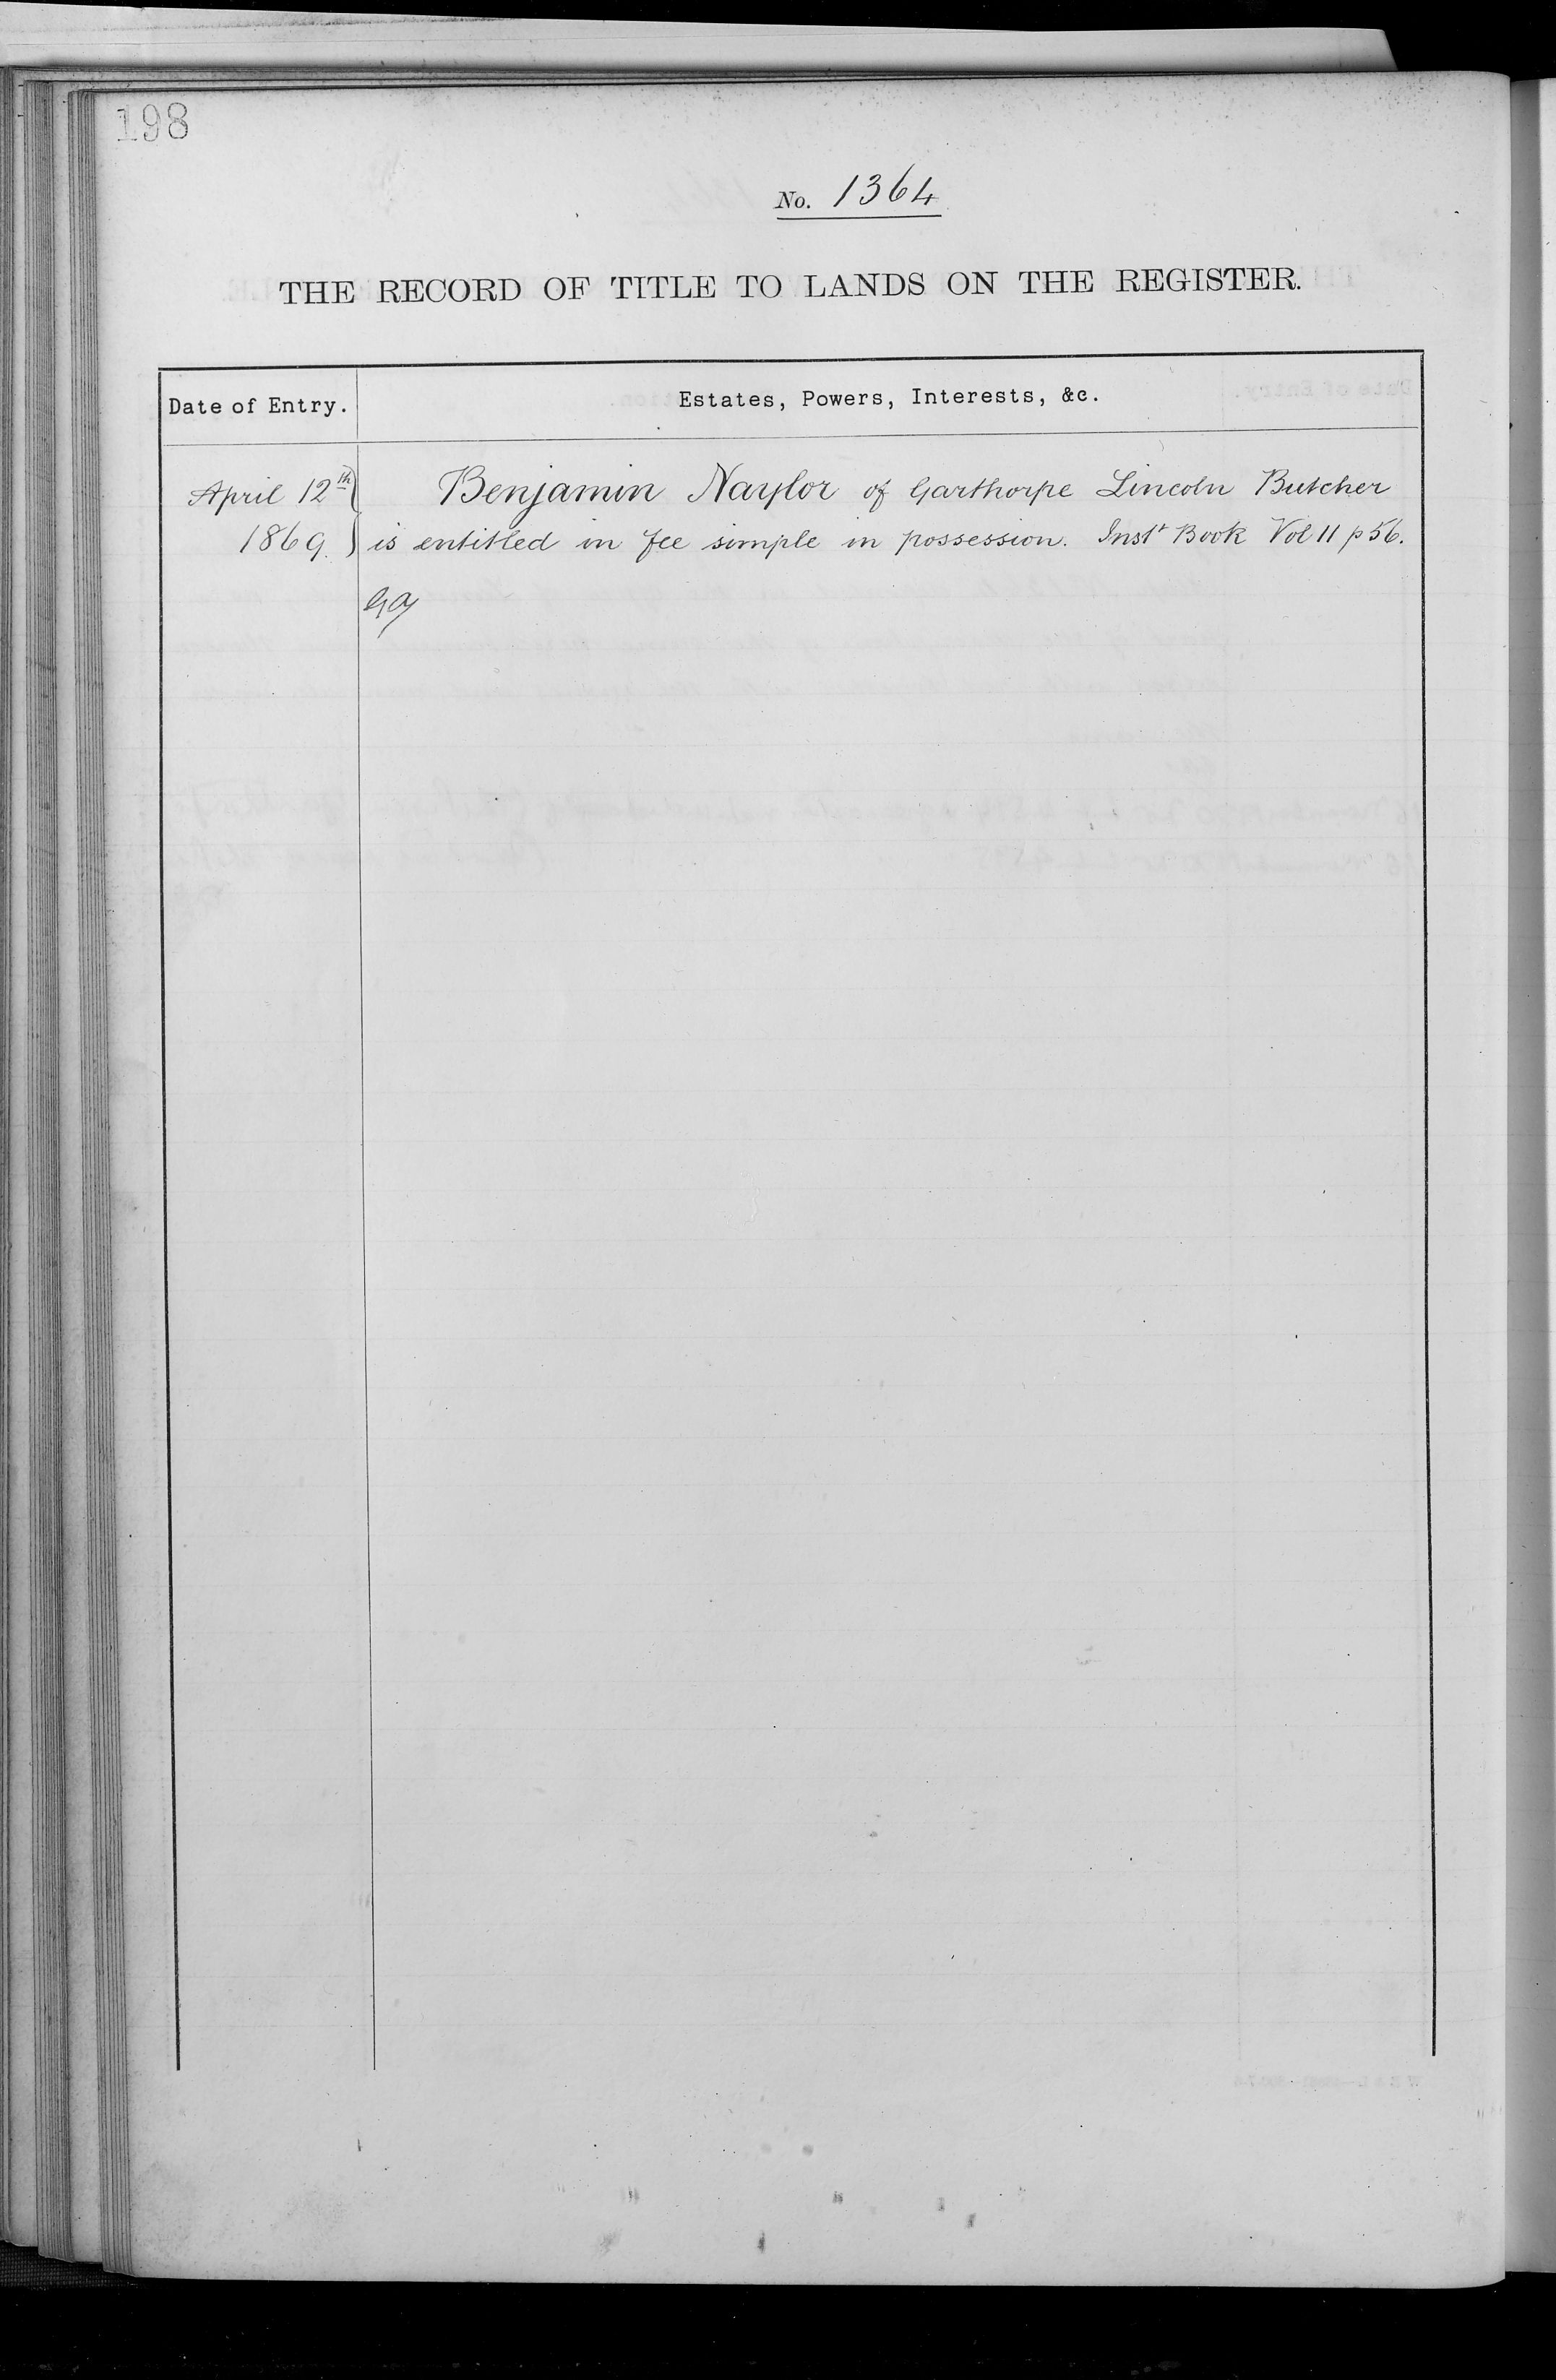 198
No. 1364
THE RECORD OF TITLE TO LANDS ON THE REGISTER.
Date of Entry.
Estates, Powers, Interests, &c.
April 12th
1869.
Benjamin Naylor of Garthorpe Lincoln Butcher
is entitled in fee simple in possession. Inst Book Vol 11 p 56.